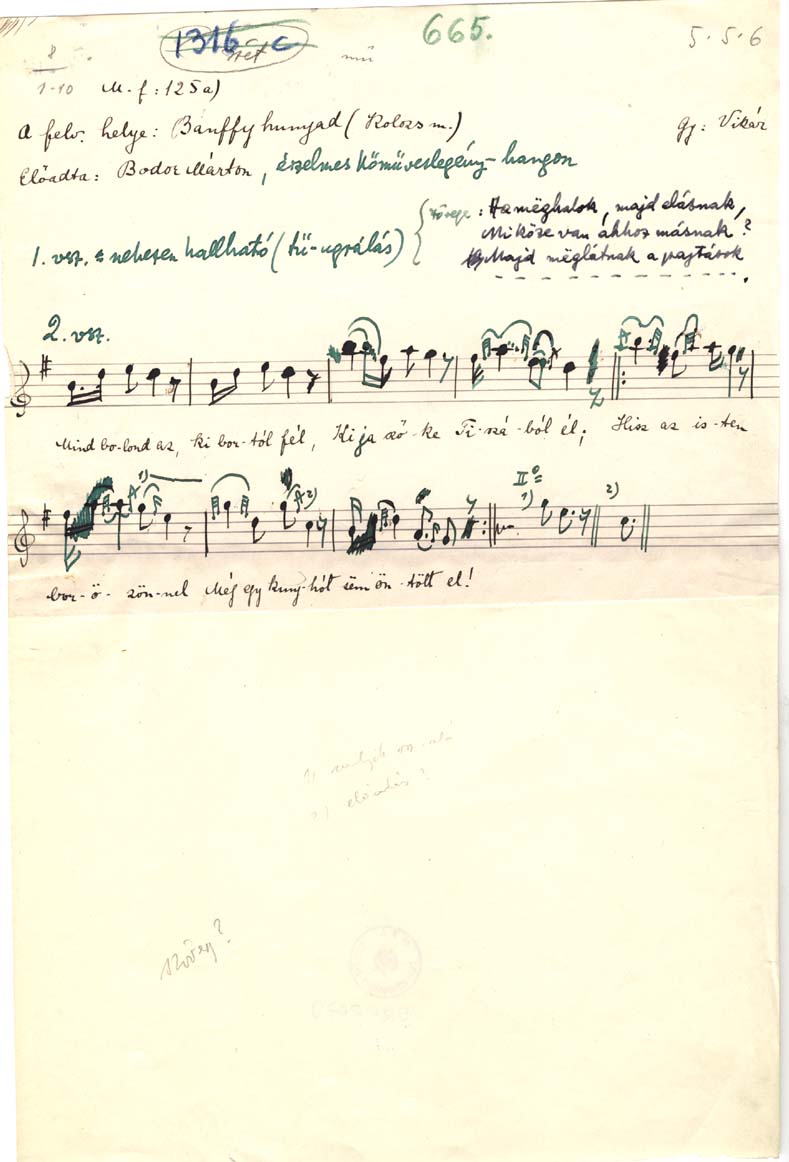 1316 c 665. 5.5.6
8 mű
1-10 M. f: 125a)
A felv. helye: Bánffyhunyad (Kolozs m.) Gy: Vikár
Előadta: Bodor Márton, érzelmes kőműveslegény-hangon
1. vsz. = nehezen hallható (tű-ugrálás) szövege: Ha mëghalok, majd elásnak,
Mi köze van ahhoz másnak?
Majd mëglátnak a pajtások
2. vsz.
Mind bo-lond az, ki bor-tól fél, Ki ja sző-ke Ti-szá-ból él; Hisz az is-ten
1) 2) II° = 1) 2)
bor-ö-zön-nel Még egy kuny-hót sëm ön-tött el!
2) előadás?
szöveg?